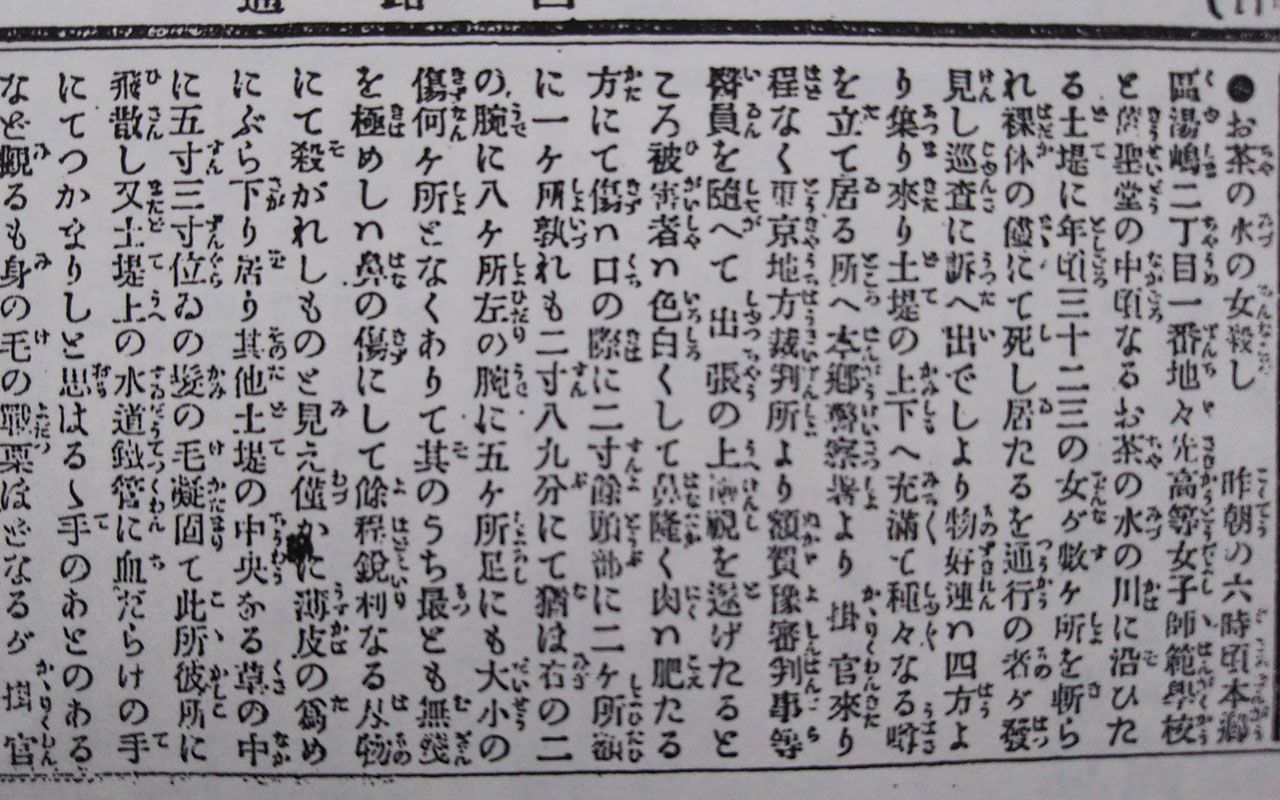 ●お茶の水の女殺し　昨朝の六時頃本郷
區湯嶋二丁目一番地々先高等女子師範學校
と舊聖堂の中頃なるお茶の水の川に沿ひた
る土堤に年頃三十二三の女が數ヶ所を斬ら
れ裸体の儘にて死し居たるを通行の者が發
見し巡査に訴へ出でしより物好連ハ四方よ
り集り來り土堤の上下へ充滿て種々なる噂
を立て居る所へ本郷警察署より掛官來り
程なく東京地方裁判所より額賀豫審判事等
醫員を隨へて出張の上檢視を遂げたると
ころ被害者ハ色白くして鼻隆く肉ハ肥たる
方にて傷ハ口の際に二寸餘頭部に二ヶ所額
に一ヶ所孰れも二寸八九分にて猶ほ右の二
の腕に八ヶ所左の腕に五ヶ所足にも大小の
傷何ヶ所となくありて其のうち最とも無殘
を極めしハ鼻の傷にして餘程鋭利なる刄物
にて殺がれしものと見え僅かに薄皮の爲め
にぶら下り居り其他土堤の中央なる草の中
に五寸三寸位ゐの髪の毛凝固て此所彼所に
飛散し又土堤上の水道鐵管に血だらけの手
にてつかまりしと思はるゝ手のあとのある
など觀るも身の毛の戰栗ほどなるが掛官